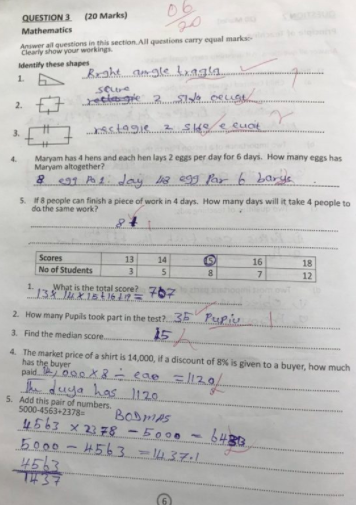 06
20
QUESTION 3 (20 Marks)
Mathematics
Answer all questions in this section. All questions carry equal marks.
Clearly show your workings.
Identify these shapes
1. Right angle
2. 2 side equal
3. rectagle 2 side e cuat
4. Maryam has 4 hens and each hen lays 2 eggs per day for 6 days. How many eggs has
Maryam altogether?
8 egg day 48 egg Par 6
5. If 8 people can finish a piece of work in 4 days. How many days will it take 4 people to
do the same work?
8
Scores 13 14 15 16 18
No of Students 3 5 8 7 12
1. What is the total score?
2. How many Pupils took part in the test? 35
3. Find the median score 15
4. The market price of a shirt is 14,000, if a discount of 8% is given to a buyer, how much
has the buyer
paid = 1120
has 1120
5. Add this pair of numbers.
5000-4563+2378= BODMAS
4563 x 2378 - 5000 =
5000 - 4563 = 1437.1
4563
1437
6